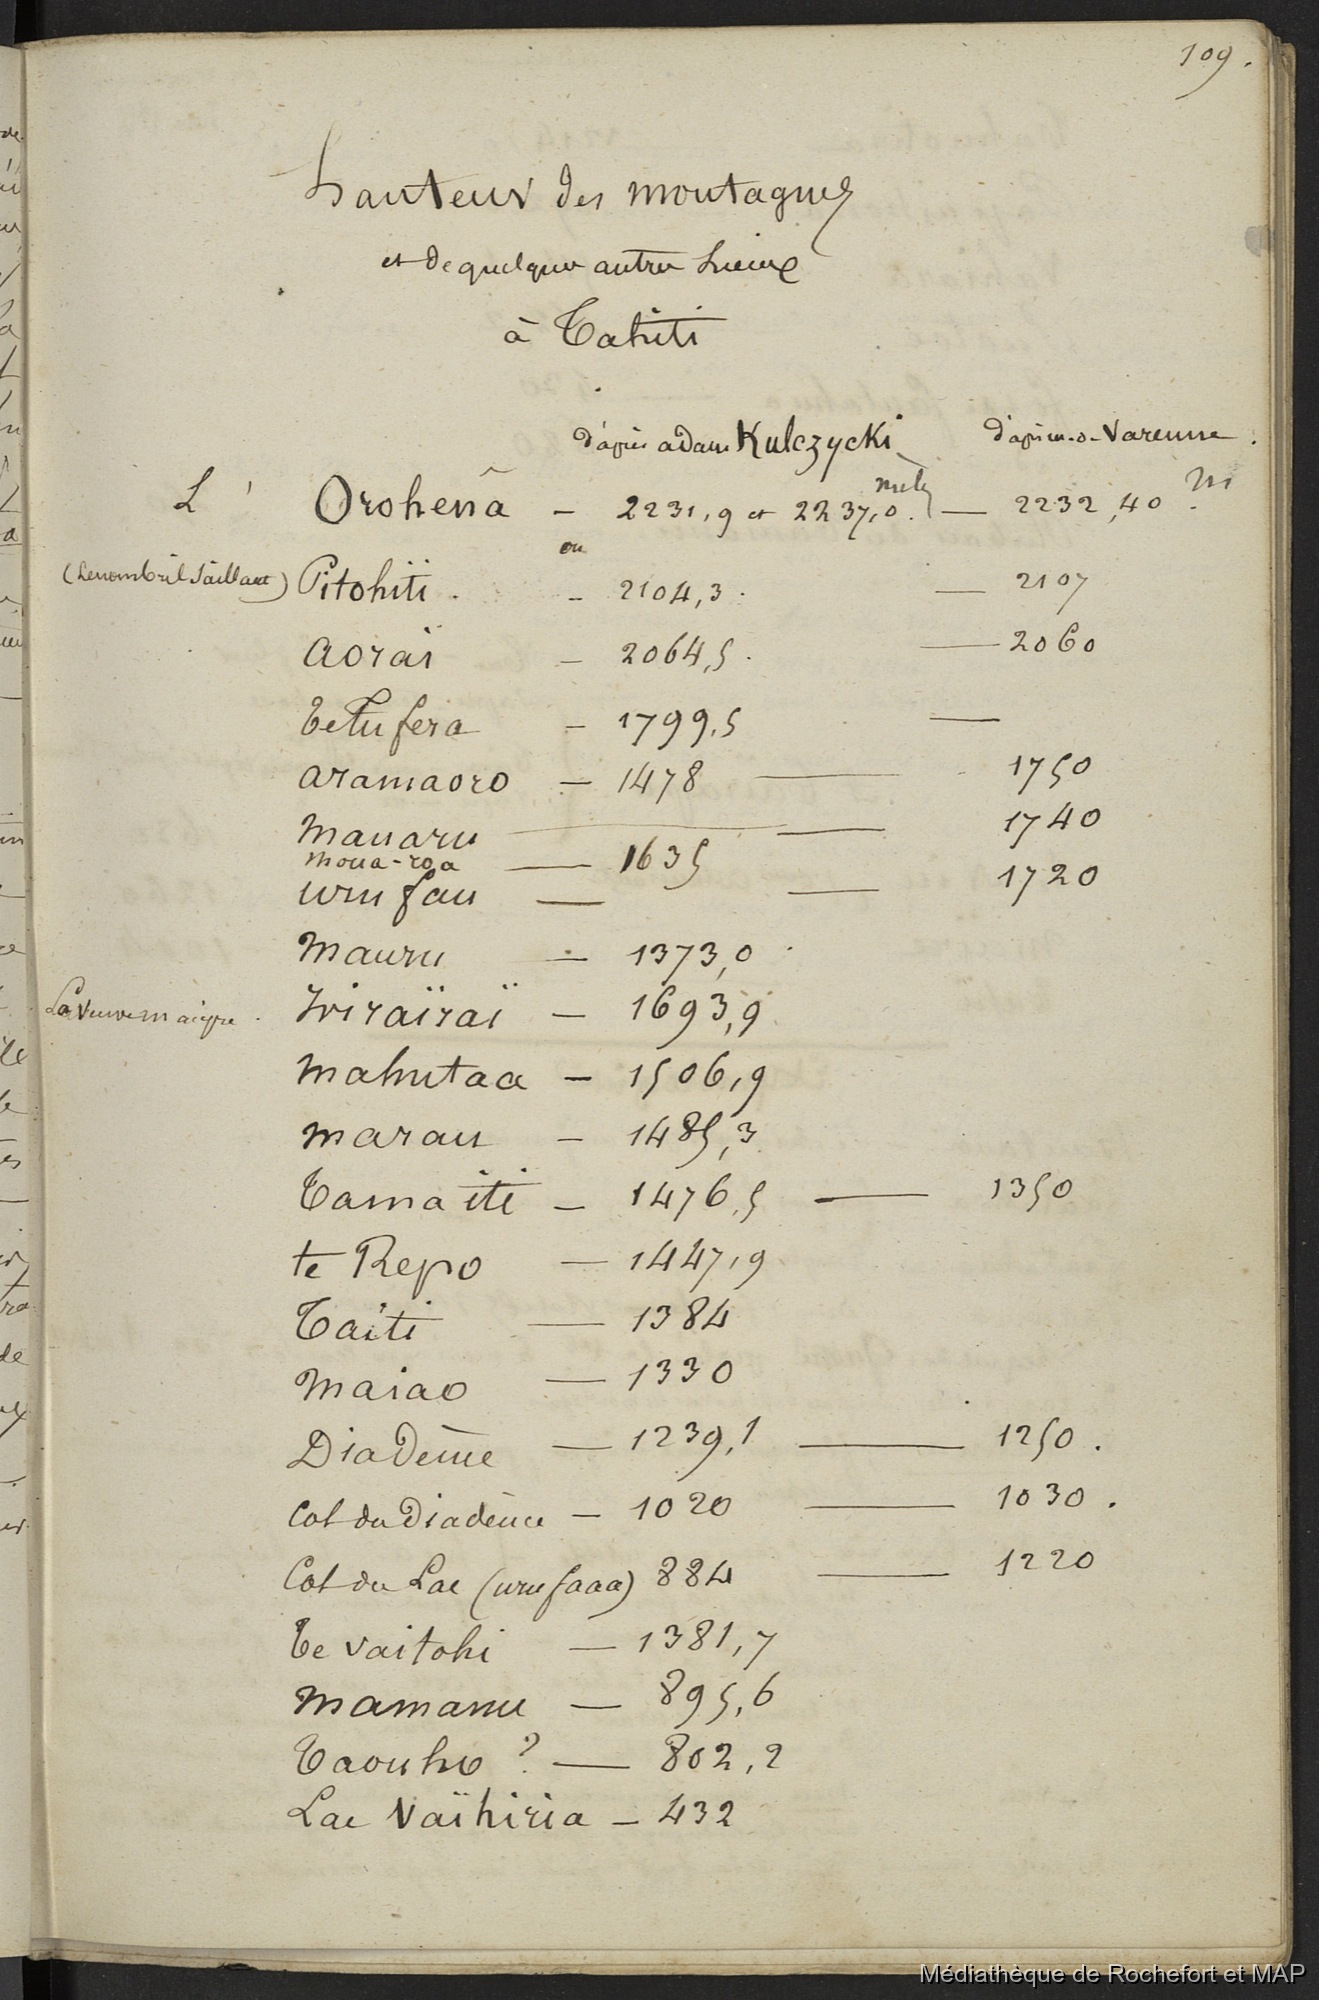 109.
hauteur des montagnes
et de quelques autres Lieux
à Tahiti
d'après adam Kulczycki d'après Varenne.
L' Orohena — 2231,9 et 2237,0. mètres — 2232,40 m
ou
(Le nombril Saillant) Pitohiti. — 2104,3. — 2107
aoraï — 2064,5. — 2060
Tetufera — 1799,5 —
aramaoro — 1478 — 1750
manaru — 1740
moua-roa — 1635
urufau — — 1720
mauru — 1373,0
La Veuve maigre. Iviraïraï — 1693,9
mahutaa — 1506,9
marau — 1485,3
Tamaiti — 1476,5 — 1350
te Repo — 1447,9
Taiti — 1384
maiao — 1330
Diadème — 1239,1 — 1250.
Col du Diadème — 1020 — 1030.
Col du Lac (urufaaa) 884 — 1220
Te vaitohi — 1381,7
mamanu — 895,6
Taouho ? — 802,2
Lac Vaïhiria — 432
Médiathèque de Rochefort et MAP